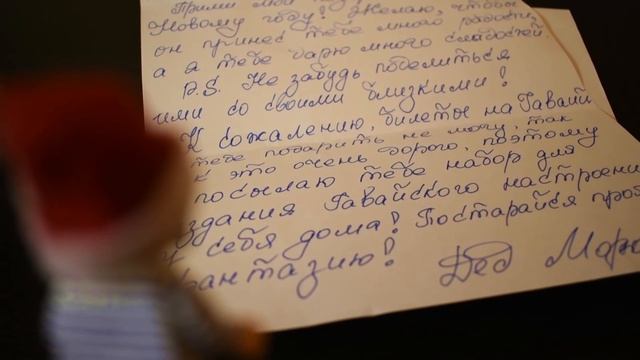 Прими мои
Новому году! Желаю, чтобы
он принёс тебе много радости,
а я тебе дарю много сладостей.
P.S. Не забудь поделиться
ими со своими близкими!
К сожалению, билеты на Гавайи
тебе подарить не могу, так
к это очень дорого, поэтому
посылаю тебе набор для
здания Гавайского настроени
у себя дома! Постарайся проя
фантазию!
Дед Моро